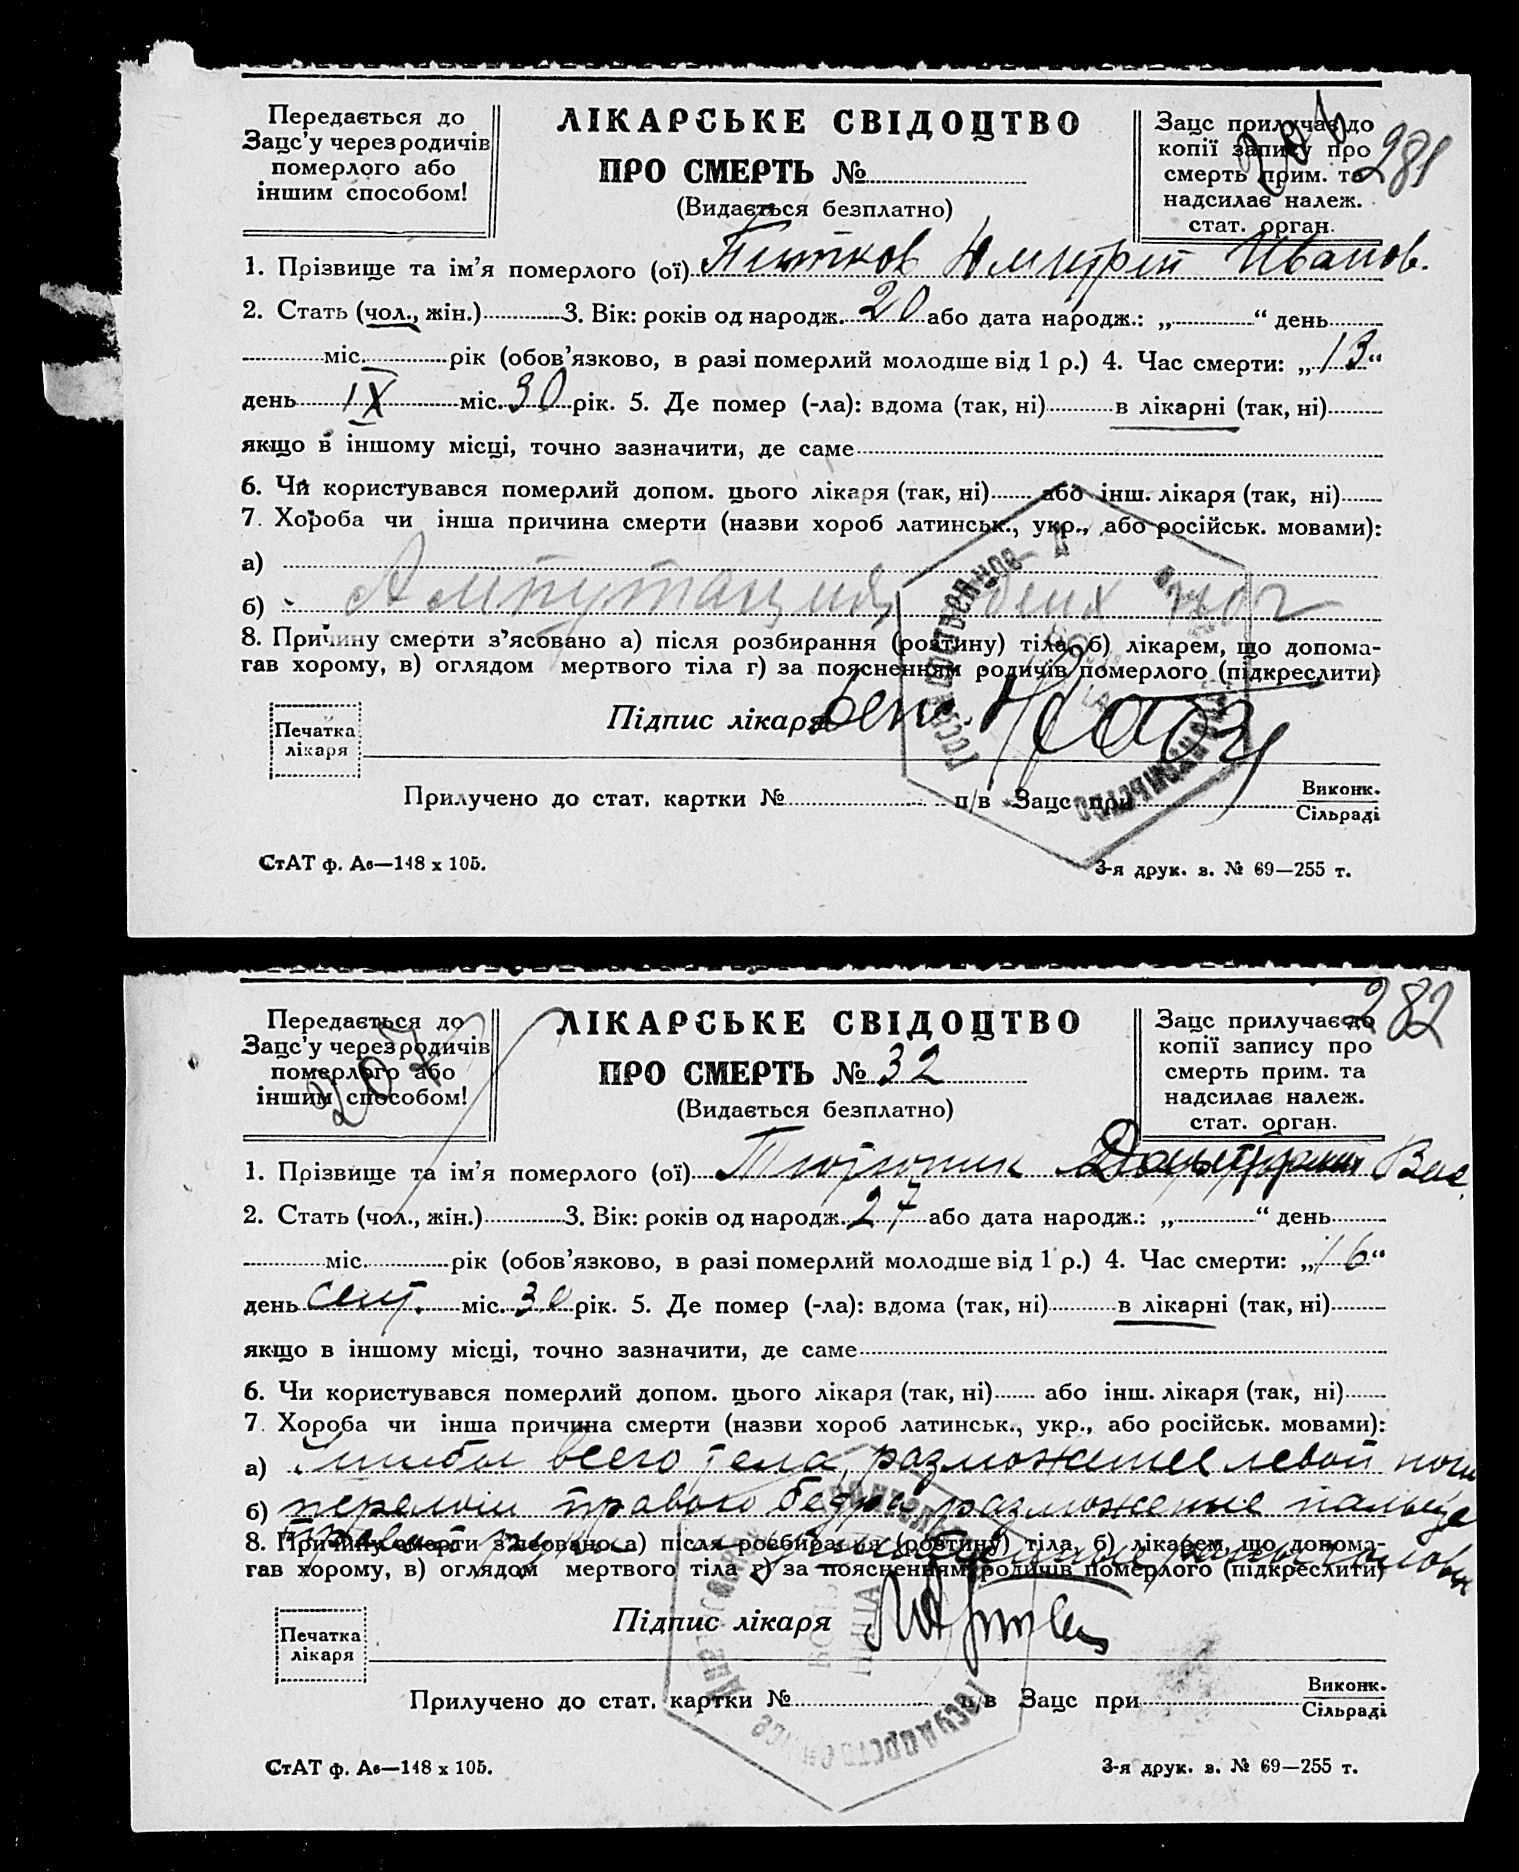 Передається до
Зацс'у через родичів
померлого або
іншим способом!
ЛІКАРСЬКЕ СВІДОЦТВО
ПРО СМЕРТЬ №
(Видається безплатно)
Зацс прилучає до
копії запису про
смерть прим. та
надсилає належ.
стат. орган.
281
1. Прізвище та ім'я померлого (ої) Иванов.
2. Стать (чол., жін.) 3. Вік: років од народж. 20 або дата народж.: „ “ день
міс. рік (обов'язково, в разі померлий молодше від 1 р.) 4. Час смерти: „13“
день IX міс. 30 рік. 5. Де помер (-ла): вдома (так, ні) в лікарні (так, ні)
якщо в іншому місці, точно зазначити, де саме
6. Чи користувався померлий допом. цього лікаря (так, ні) або інш. лікаря (так, ні)
7. Хороба чи інша причина смерти (назви хороб латинськ., укр., або російськ. мовами):
а)
б) Ампутация обеих ног
8. Причину смерти з'ясовано а) після розбирання (розтину) тіла, б) лікарем, що допома-
гав хорому, в) оглядом мертвого тіла г) за поясненням родичів померлого (підкреслити)
Печатка
лікаря
Підпис лікаря
Прилучено до стат. картки № п/в Зацс при
Виконк.
Сільраді
СтАТ ф. Ав—148 х 105.
3-я друк. з. № 69—255 т.
Передається до
Зацс'у через родичів
померлого або
іншим способом!
207
ЛІКАРСЬКЕ СВІДОЦТВО
ПРО СМЕРТЬ № 32
(Видається безплатно)
Зацс прилучає до
копії запису про
смерть прим. та
надсилає належ.
стат. орган.
282
1. Прізвище та ім'я померлого (ої) Вас.
2. Стать (чол., жін.) 3. Вік: років од народж. 27 або дата народж.: „ “ день
міс. рік (обов'язково, в разі померлий молодше від 1 р.) 4. Час смерти: „16“
день сент. міс. 30 рік. 5. Де помер (-ла): вдома (так, ні) в лікарні (так, ні)
якщо в іншому місці, точно зазначити, де саме
6. Чи користувався померлий допом. цього лікаря (так, ні) або інш. лікаря (так, ні)
7. Хороба чи інша причина смерти (назви хороб латинськ., укр., або російськ. мовами):
а) Ушибы всего тела, разможение левой ноги
б) перелом правого бедра разможение пальца
правой руки раны головы
8. Причину смерти з'ясовано а) після розбирання (розтину) тіла, б) лікарем, що допома-
гав хорому, в) оглядом мертвого тіла г) за поясненням родичів померлого (підкреслити)
Печатка
лікаря
Підпис лікаря
Прилучено до стат. картки № п/в Зацс при
Виконк.
Сільраді
СтАТ ф. Ав—148 х 105.
3-я друк. з. № 69—255 т.